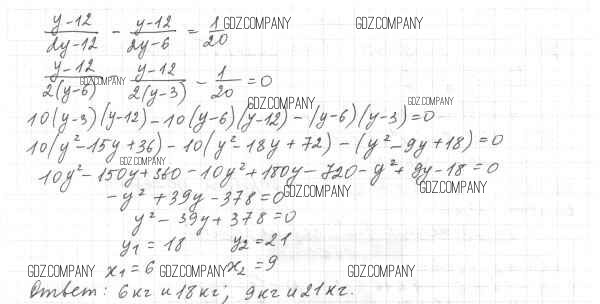 (y-12)/(2y-12) - (y-12)/(2y-6) = 1/20 GDZ.COMPANY GDZ.COMPANY
(y-12)/(2(y-6)) GDZ.COMPANY - (y-12)/(2(y-3)) - 1/20 = 0
GDZ.COMPANY GDZ.COMPANY
10(y-3)(y-12) - 10(y-6)(y-12) - (y-6)(y-3) = 0
10(y²-15y+36) - 10(y²-18y+72) - (y²-9y+18) = 0
GDZ.COMPANY
10y²-150y+360-10y²+180y-720-y²+9y-18=0
-y²+39y-378=0 GDZ.COMPANY GDZ.COMPANY
y²-39y+378=0
y₁=18 y₂=21
GDZ.COMPANY x₁=6 GDZ.COMPANY x₂=9 GDZ.COMPANY
Ответ: 6 кг и 18 кг; 9 кг и 21 кг.